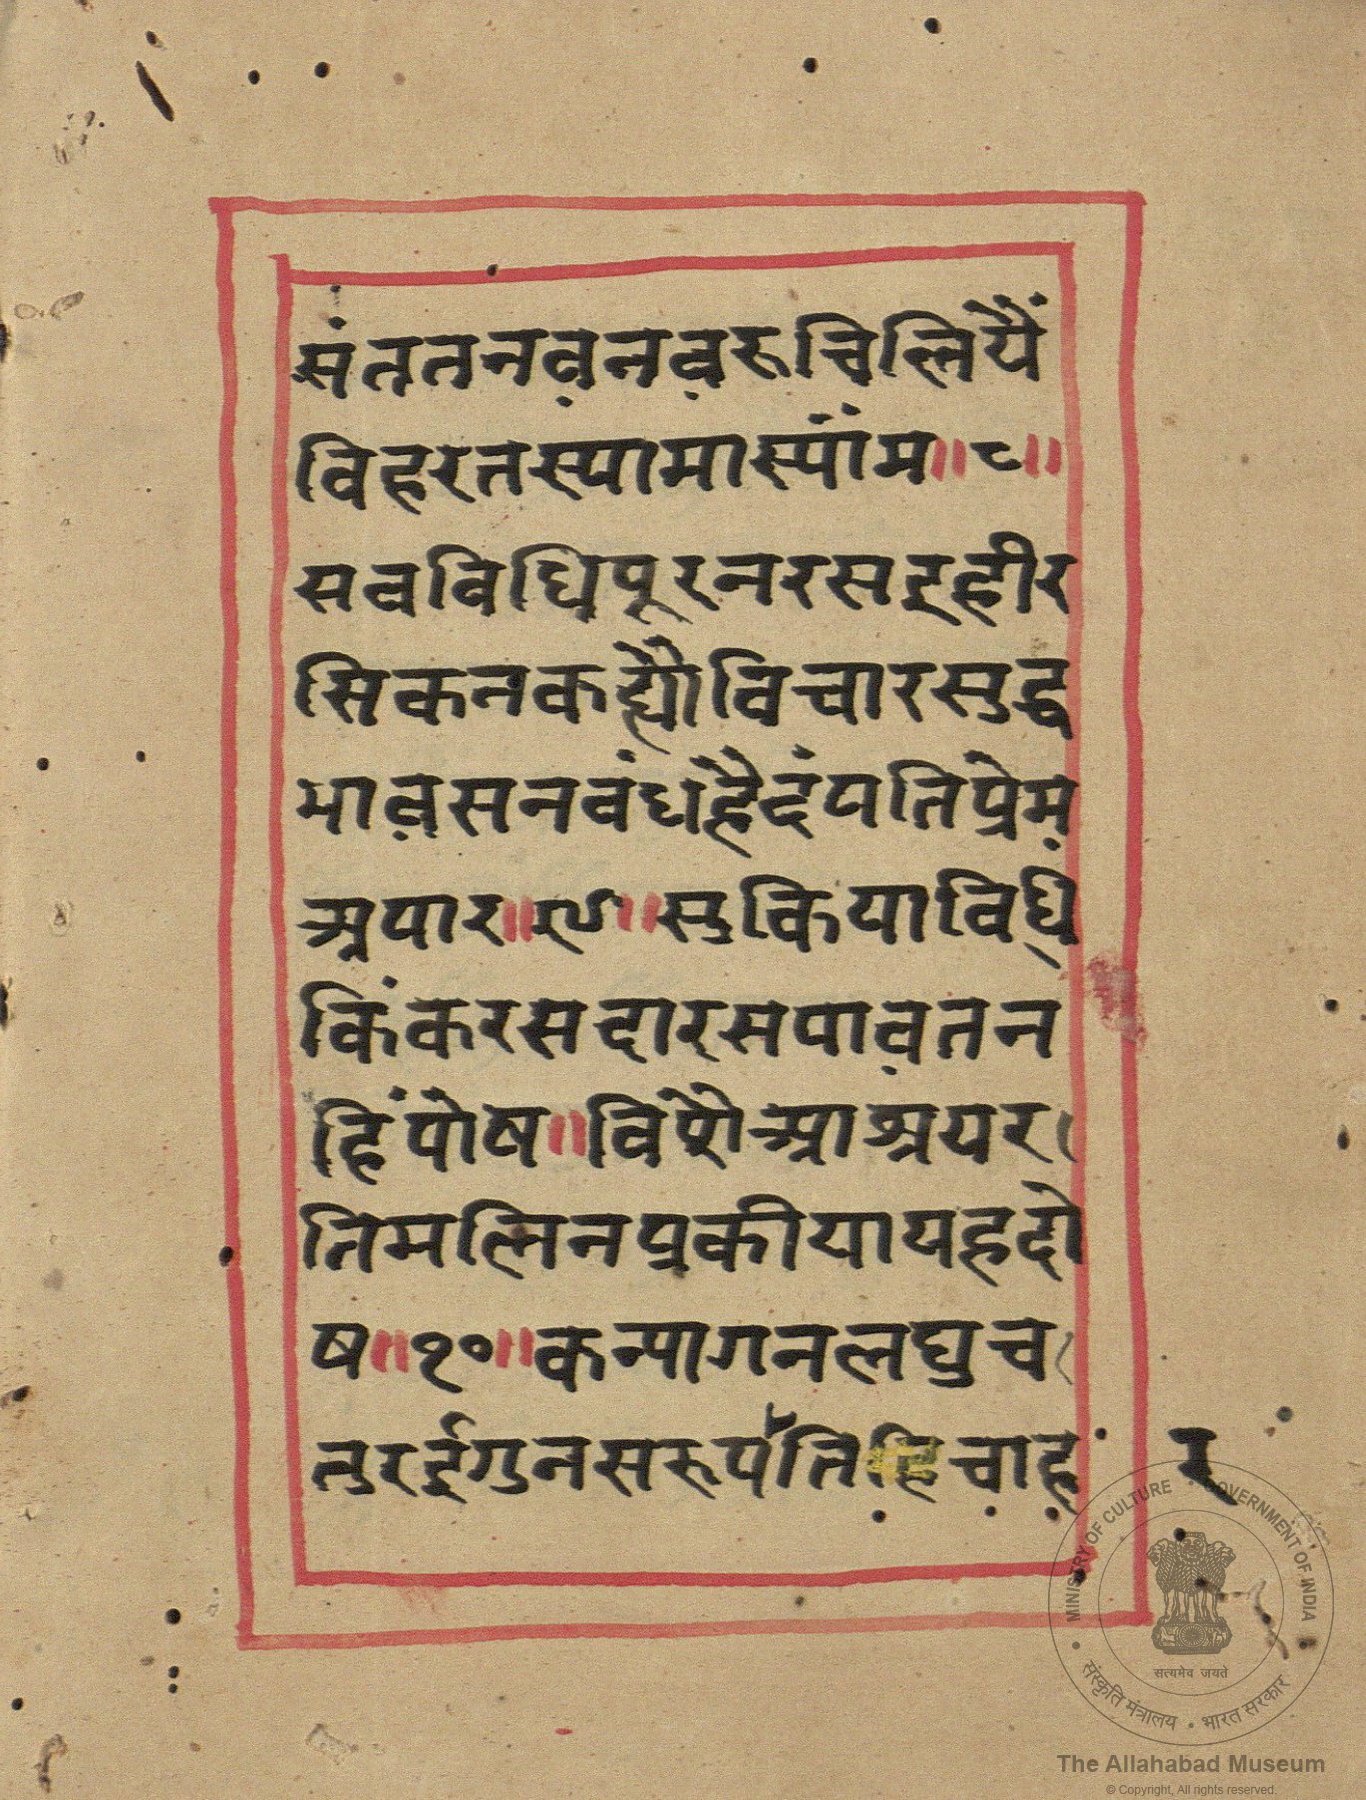 संततनव़नव़रुचिलियैं
विहरतस्यामास्यांम॥८॥
सवविधिपूरनरसइहीर
सिकनकह्यौविचारसुद्ध
भाव़सनवंधहैदंपतिप्रेम़
अपार॥९॥सुकियाविधि
किंकरसदारसपाव़तन
हिंपोष॥विंपरौआश्रयर
तिमलिनप्रकीयायहदो
ष॥१०॥कन्यागनलघुच
तुरईगुनसरूपपतिहि़चा़ह़ र
MINISTRY OF CULTURE GOVERNMENT OF INDIA
सत्यमेव जयते
संस्कृति मंत्रालय • भारत सरकार
The Allahabad Museum
© Copyright, All rights reserved.